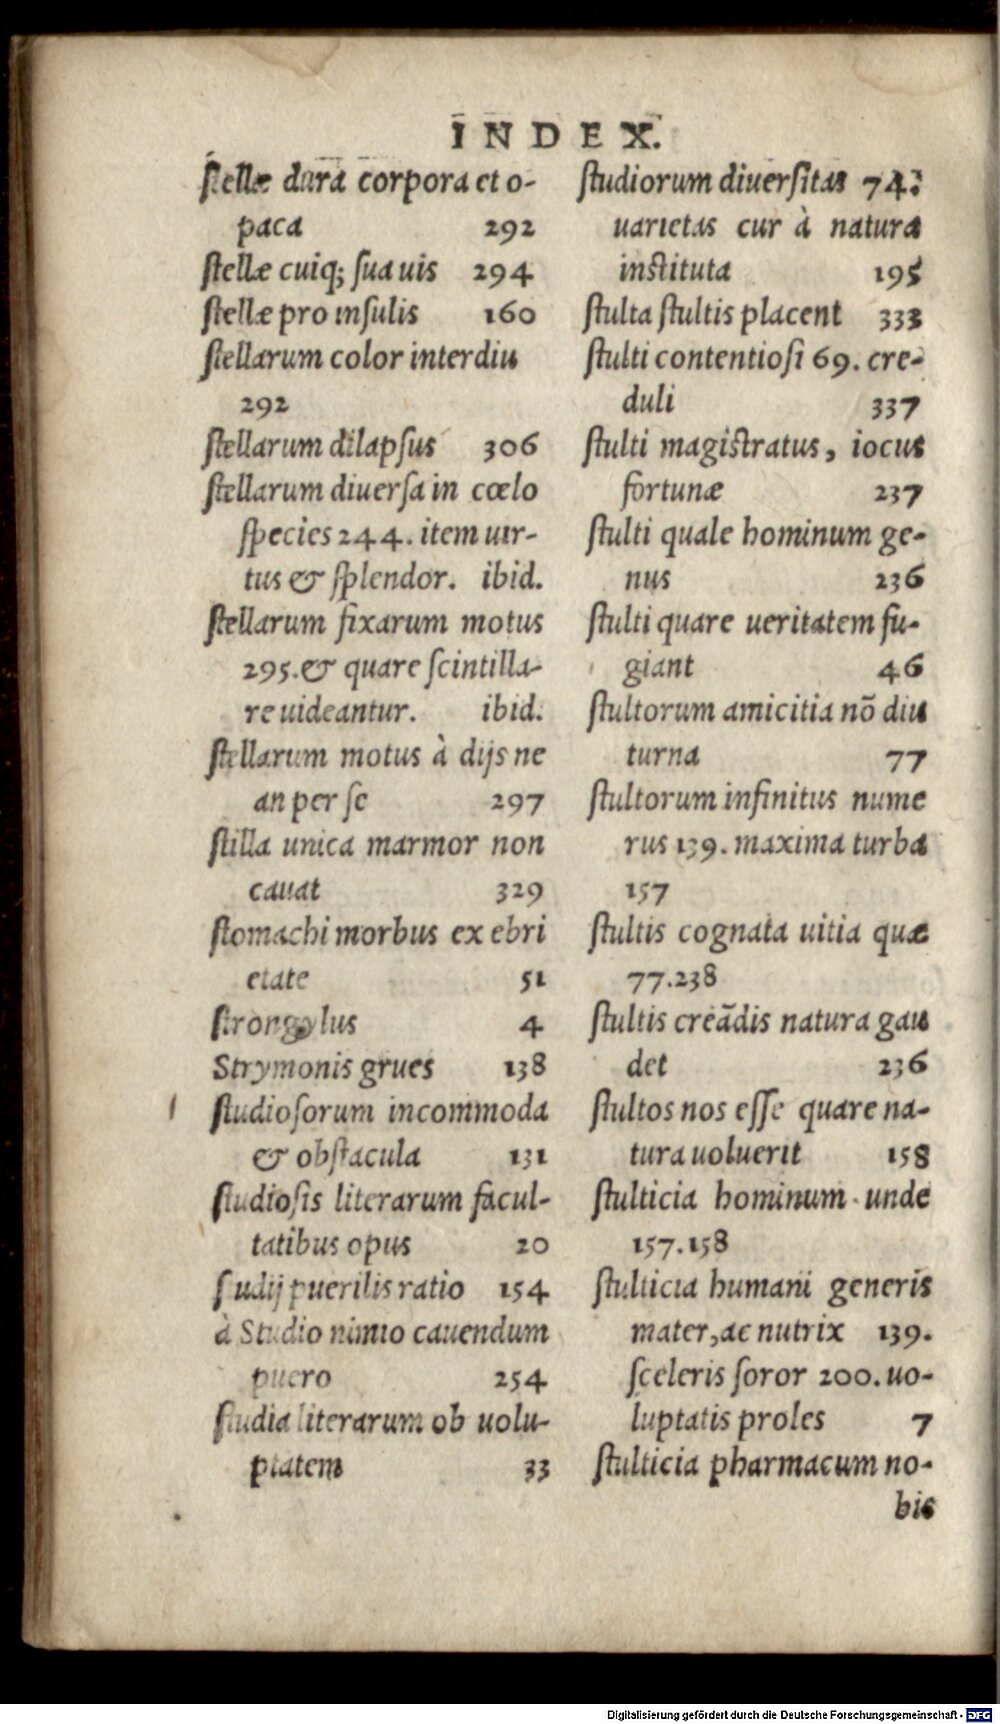 INDEX.
ſtellæ dura corpora et o-
paca 292
ſtellæ cuiq; ſua uis 294
ſtellæ pro inſulis 160
ſtellarum color interdiu
292
ſtellarum dilapſus 306
ſtellarum diuerſa in cœlo
ſpecies 244. item uir-
tus & ſplendor. ibid.
ſtellarum fixarum motus
295. & quare ſcintilla-
re uideantur. ibid.
ſtellarum motus à dijs ne
an per ſe 297
ſtilla unica marmor non
cauat 329
ſtomachi morbus ex ebri
etate 51
ſtrongylus 4
Strymonis grues 138
ſtudioſorum incommoda
& obſtacula 131
ſtudioſis literarum facul-
tatibus opus 20
ſtudij puerilis ratio 154
à Studio nimio cauendum
puero 254
ſtudia literarum ob uolu-
ptatem 33
ſtudiorum diuerſitas 74:
uarietas cur à natura
inſtituta 195
ſtulta ſtultis placent 333
ſtulti contentioſi 69. cre-
duli 337
ſtulti magiſtratus, iocus
fortunæ 237
ſtulti quale hominum ge-
nus 236
ſtulti quare ueritatem fu-
giant 46
ſtultorum amicitia nõ diu
turna 77
ſtultorum infinitus nume
rus 139. maxima turba
157
ſtultis cognata uitia quæ
77.238
ſtultis creãdis natura gau
det 236
ſtultos nos eſſe quare na-
tura uoluerit 158
ſtulticia hominum unde
157.158
ſtulticia humani generis
mater, ac nutrix 139.
ſceleris ſoror 200. uo-
luptatis proles 7
ſtulticia pharmacum no-
bis
Digitalisierung gefördert durch die Deutsche Forschungsgemeinschaft - DFG